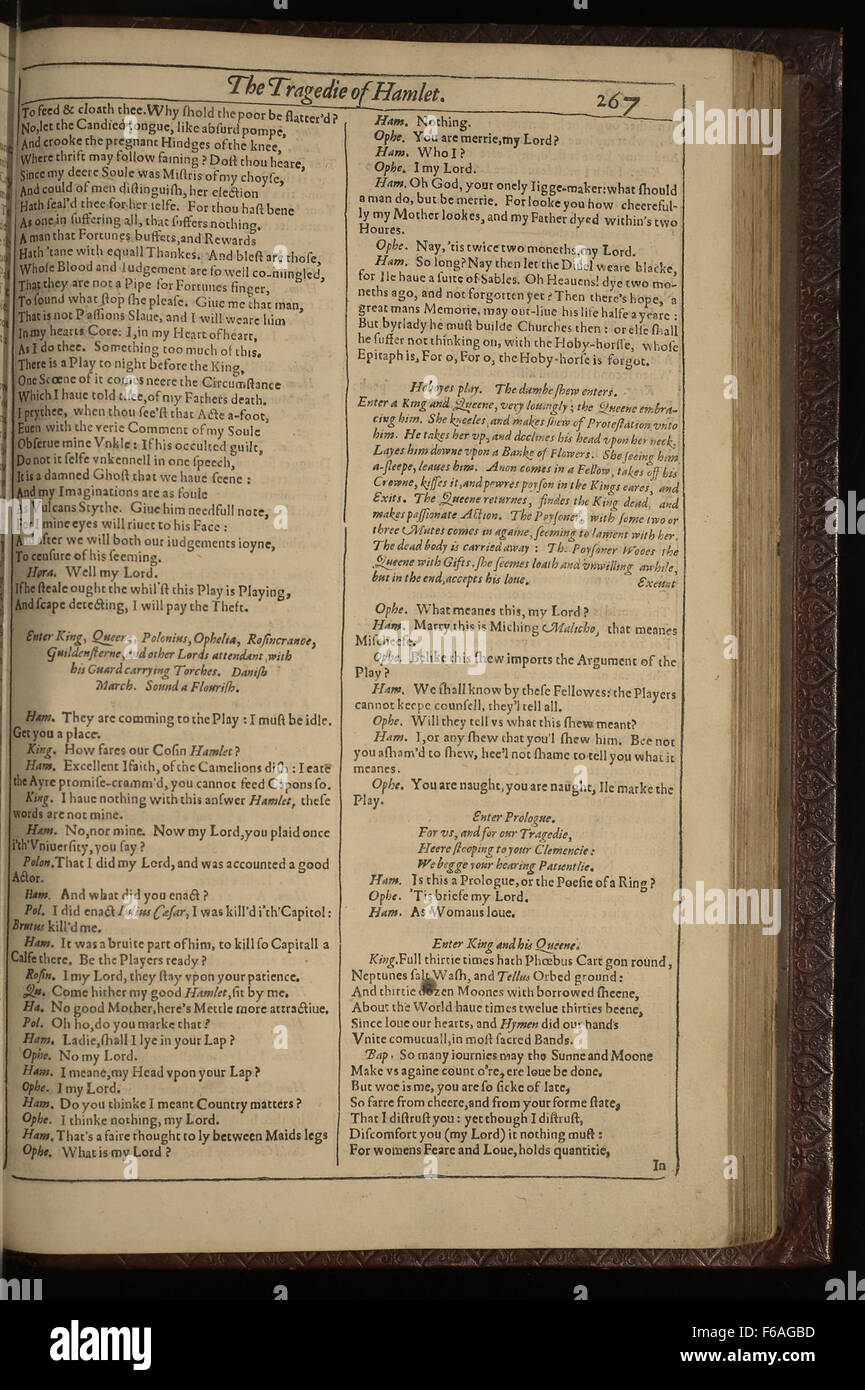 The Tragedie of Hamlet.
267
To feed & cloath thee. Why ſhold the poor be flatter'd?
No, let the Candied tongue, like abſurd pompe,
And crooke the pregnant Hindges of the knee,
Where thrift may follow faining? Doſt thou heare,
Since my deere Soule was Miſtris of my choyſe,
And could of men diſtinguiſh, her election
Hath ſeal'd thee for her ſelfe. For thou haſt bene
As one in ſuffering all, that ſuffers nothing.
A man that Fortunes buffets, and Rewards
Hath 'tane with equall Thankes. And bleſt are thoſe,
Whoſe Blood and Iudgement are ſo well co-mingled,
That they are not a Pipe for Fortunes finger,
To ſound what ſtop ſhe pleaſe. Giue me that man,
That is not Paſſions Slaue, and I will weare him
In my hearts Core: I, in my Heart of heart,
As I do thee. Something too much of this.
There is a Play to night before the King,
One Scœne of it comes neere the Circumſtance
Which I haue told thee, of my Fathers death.
I prythee, when thou ſee'ſt that Acte a-foot,
Euen with the verie Comment of my Soule
Obſerue mine Vnkle: If his occulted guilt,
Do not it ſelfe vnkennell in one ſpeech,
It is a damned Ghoſt that we haue ſeene:
And my Imaginations are as foule
As Vulcans Stythe. Giue him needfull note,
For I mine eyes will riuet to his Face:
And after we will both our iudgements ioyne,
To cenſure of his ſeeming.
Hora. Well my Lord.
If he ſteale ought the whil'ſt this Play is Playing,
And ſcape detecting, I will pay the Theft.
Enter King, Queene, Polonius, Ophelia, Roſincrance,
Guildenſterne, and other Lords attendant, with
his Guard carrying Torches. Daniſh
March. Sound a Flouriſh.
Ham. They are comming to the Play: I muſt be idle.
Get you a place.
King. How fares our Coſin Hamlet?
Ham. Excellent Ifaith, of the Camelions diſh: I eate
the Ayre promiſe-cramm'd, you cannot feed Capons ſo.
King. I haue nothing with this anſwer Hamlet, theſe
words are not mine.
Ham. No, nor mine. Now my Lord, you plaid once
i'th'Vniuerſity, you ſay?
Polon. That I did my Lord, and was accounted a good
Actor.
Ham. And what did you enact?
Pol. I did enact Iulius Cæſar, I was kill'd i'th'Capitol:
Brutus kill'd me.
Ham. It was a bruite part of him, to kill ſo Capitall a
Calfe there. Be the Players ready?
Roſin. I my Lord, they ſtay vpon your patience.
Qu. Come hither my good Hamlet, ſit by me.
Ha. No good Mother, here's Mettle more attractiue.
Pol. Oh ho, do you marke that?
Ham. Ladie, ſhall I lye in your Lap?
Ophe. No my Lord.
Ham. I meane, my Head vpon your Lap?
Ophe. I my Lord.
Ham. Do you thinke I meant Country matters?
Ophe. I thinke nothing, my Lord.
Ham. That's a faire thought to ly between Maids legs
Ophe. What is my Lord?
Ham. Nothing.
Ophe. You are merrie, my Lord?
Ham. Who I?
Ophe. I my Lord.
Ham. Oh God, your onely Iigge-maker: what ſhould
a man do, but be merrie. For looke you how cheereful-
ly my Mother lookes, and my Father dyed within's two
Houres.
Ophe. Nay, 'tis twice two moneths, my Lord.
Ham. So long? Nay then let the Diuel weare blacke,
for Ile haue a ſuite of Sables. Oh Heauens! dye two mo-
neths ago, and not forgotten yet? Then there's hope, a
great mans Memorie, may out-liue his life halfe a yeare:
But byrlady he muſt builde Churches then: or elſe ſhall
he ſuffer not thinking on, with the Hoby-horſſe, whoſe
Epitaph is, For o, For o, the Hoby-horſe is forgot.
Hoboyes play. The dumbe ſhew enters.
Enter a King and Queene, very louingly; the Queene embra-
cing him. She kneeles, and makes ſhew of Proteſtation vnto
him. He takes her vp, and declines his head vpon her neck.
Layes him downe vpon a Banke of Flowers. She ſeeing him
a-ſleepe, leaues him. Anon comes in a Fellow, takes off his
Crowne, kiſſes it, and powres poyſon in the Kings eares, and
Exits. The Queene returnes, findes the King dead, and
makes paſſionate Action. The Poyſoner, with ſome two or
three Mutes comes in againe, ſeeming to lament with her.
The dead body is carried away: The Poyſoner Wooes the
Queene with Gifts, ſhe ſeemes loath and vnwilling awhile,
but in the end, accepts his loue. Exeunt
Ophe. What meanes this, my Lord?
Ham. Marry this is Miching Malicho, that meanes
Miſcheefe.
Ophe. Belike this ſhew imports the Argument of the
Play?
Ham. We ſhall know by theſe Fellowes: the Players
cannot keepe counſell, they'l tell all.
Ophe. Will they tell vs what this ſhew meant?
Ham. I, or any ſhew that you'l ſhew him. Bee not
you aſham'd to ſhew, hee'l not ſhame to tell you what it
meanes.
Ophe. You are naught, you are naught, Ile marke the
Play.
Enter Prologue.
For vs, and for our Tragedie,
Heere ſtooping to your Clemencie:
We begge your hearing Patientlie.
Ham. Is this a Prologue, or the Poeſie of a Ring?
Ophe. 'Tis briefe my Lord.
Ham. As Womans loue.
Enter King and his Queene.
King. Full thirtie times hath Phœbus Cart gon round,
Neptunes ſalt Waſh, and Tellus Orbed ground:
And thirtie dozen Moones with borrowed ſheene,
About the World haue times twelue thirties beene,
Since loue our hearts, and Hymen did our hands
Vnite comutuall, in moſt ſacred Bands.
Bap. So many iournies may the Sunne and Moone
Make vs againe count o're, ere loue be done.
But woe is me, you are ſo ſicke of late,
So farre from cheere, and from your forme ſtate,
That I diſtruſt you: yet though I diſtruſt,
Diſcomfort you (my Lord) it nothing muſt:
For womens Feare and Loue, holds quantitie,
In
alamy stock photo
F6AGBD
www.alamy.com